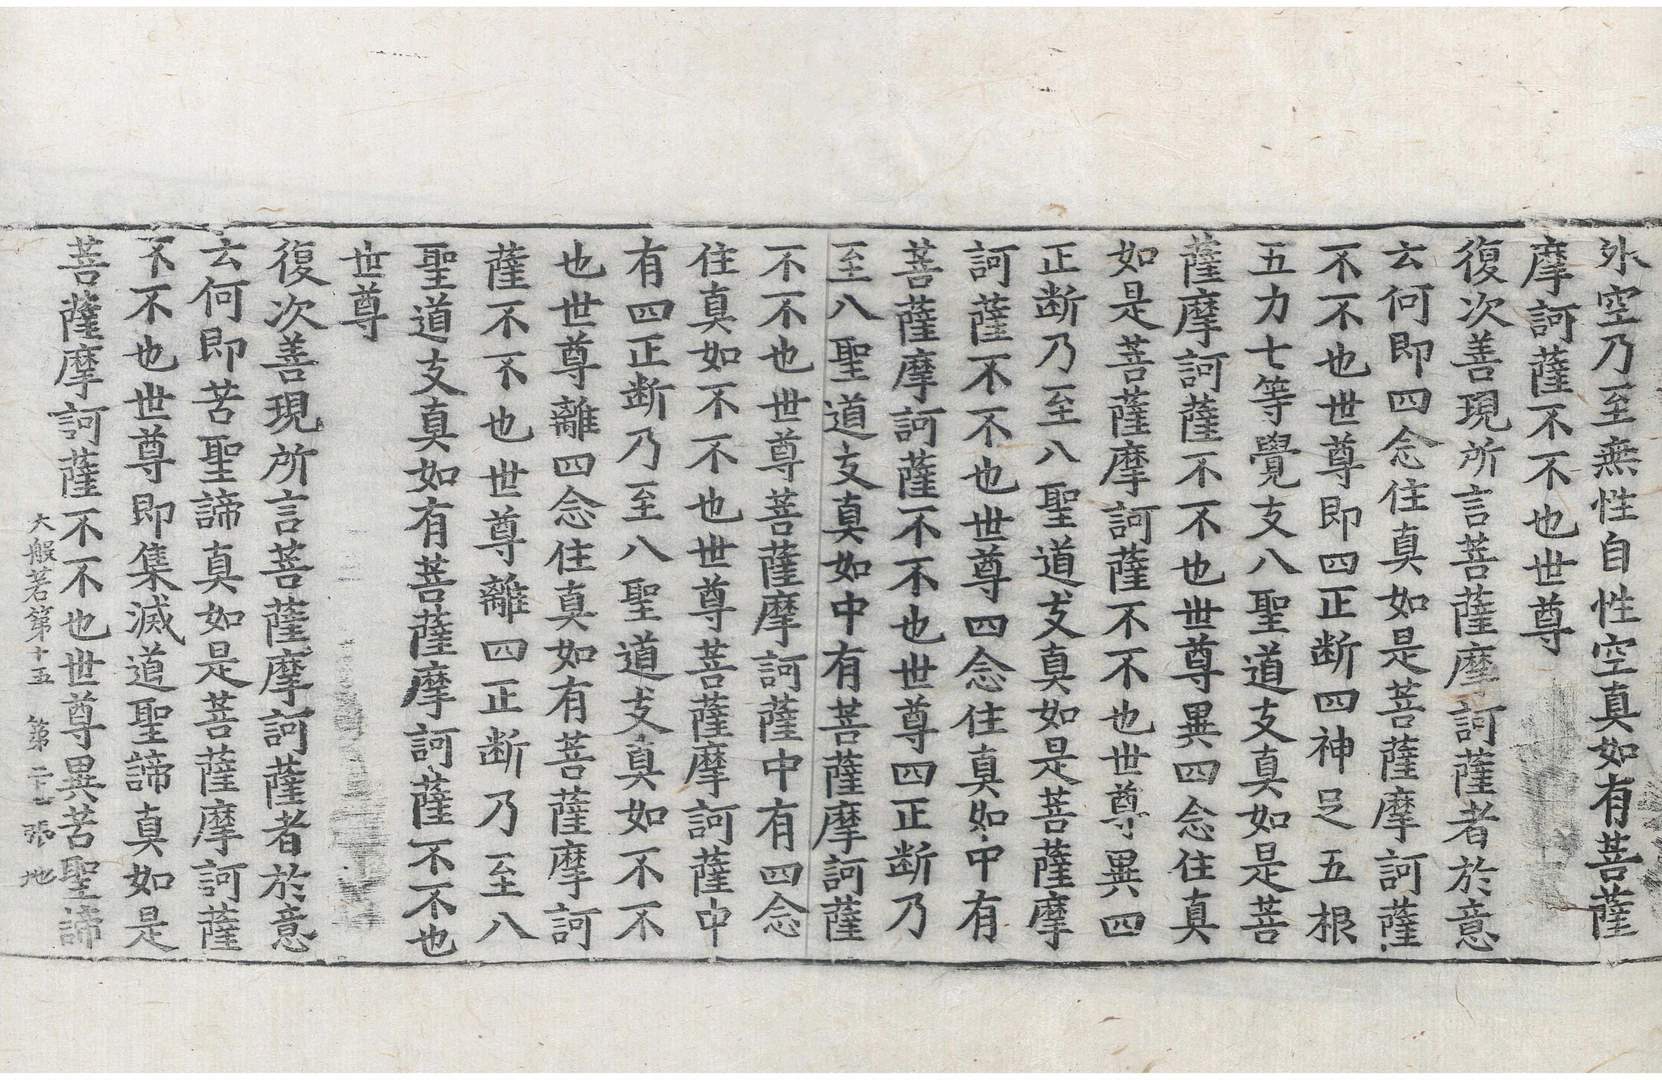 外空乃至無性自性空真如有菩薩
摩訶薩不不也世尊
復次善現所言菩薩摩訶薩者於意
云何即四念住真如是菩薩摩訶薩
不不也世尊即四正断四神足五根
五力七等覺支八聖道支真如是菩
薩摩訶薩不不也世尊異四念住真
如是菩薩摩訶薩不不也世尊異四
正断乃至八聖道支真如是菩薩摩
訶薩不不也世尊四念住真如中有
菩薩摩訶薩不不也世尊四正断乃
至八聖道支真如中有菩薩摩訶薩
不不也世尊菩薩摩訶薩中有四念
住真如不不也世尊菩薩摩訶薩中
有四正断乃至八聖道支真如不不
也世尊離四念住真如有菩薩摩訶
薩不不也世尊離四正断乃至八
聖道支真如有菩薩摩訶薩不不也
世尊
復次善現所言菩薩摩訶薩者於意
云何即苦聖諦真如是菩薩摩訶薩
不不也世尊即集滅道聖諦真如是
菩薩摩訶薩不不也世尊異苦聖諦
大般若第十五 第 張 地